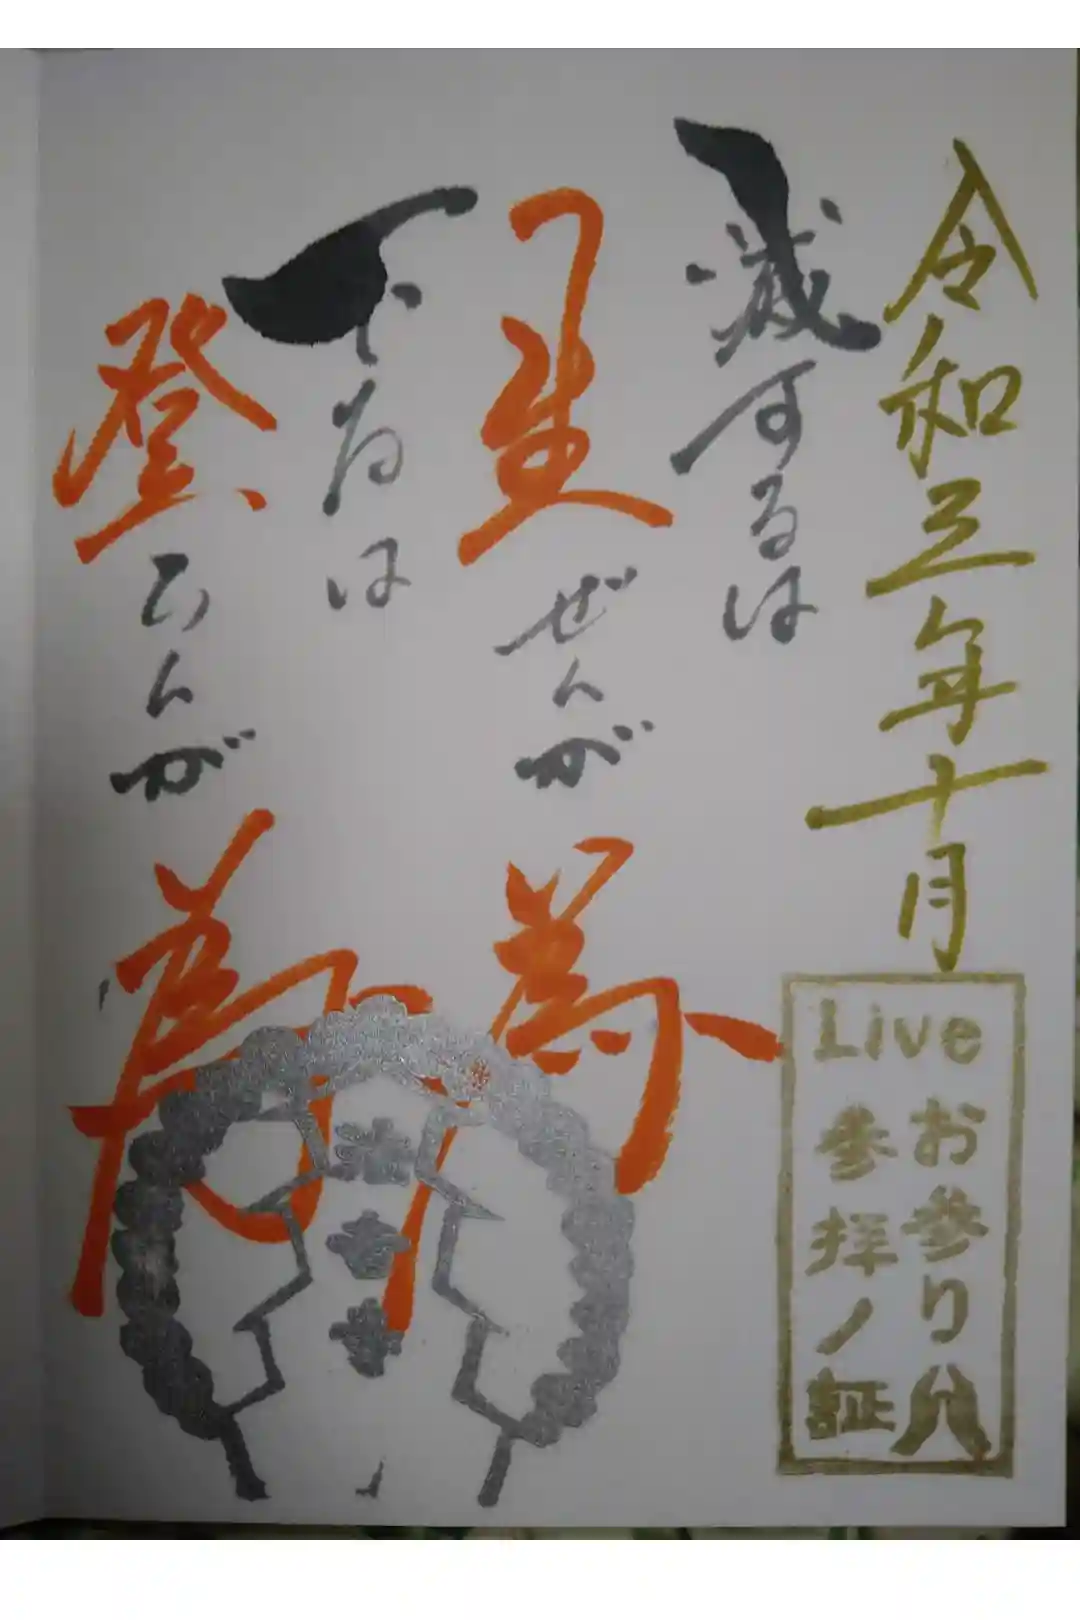 令和三年十月
滅するは
生ぜんが
為
下るは
登らんが
為
Live
お参り
参拝ノ証
法音寺